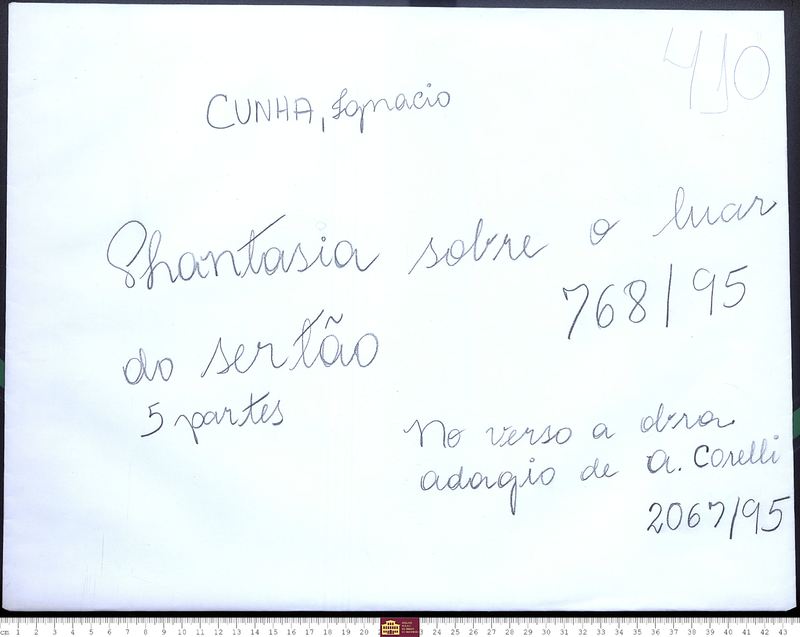 410
CUNHA, Ignacio
Phantasia sobre o luar
768/95
do sertão
5 partes
No verso a obra
adagio de A. Corelli
2067/95
cm 1 2 3 4 5 6 7 8 9 10 11 12 13 14 15 16 17 18 19 20 23 24 25 26 27 28 29 30 31 32 33 34 35 36 37 38 39 40 41 42 43